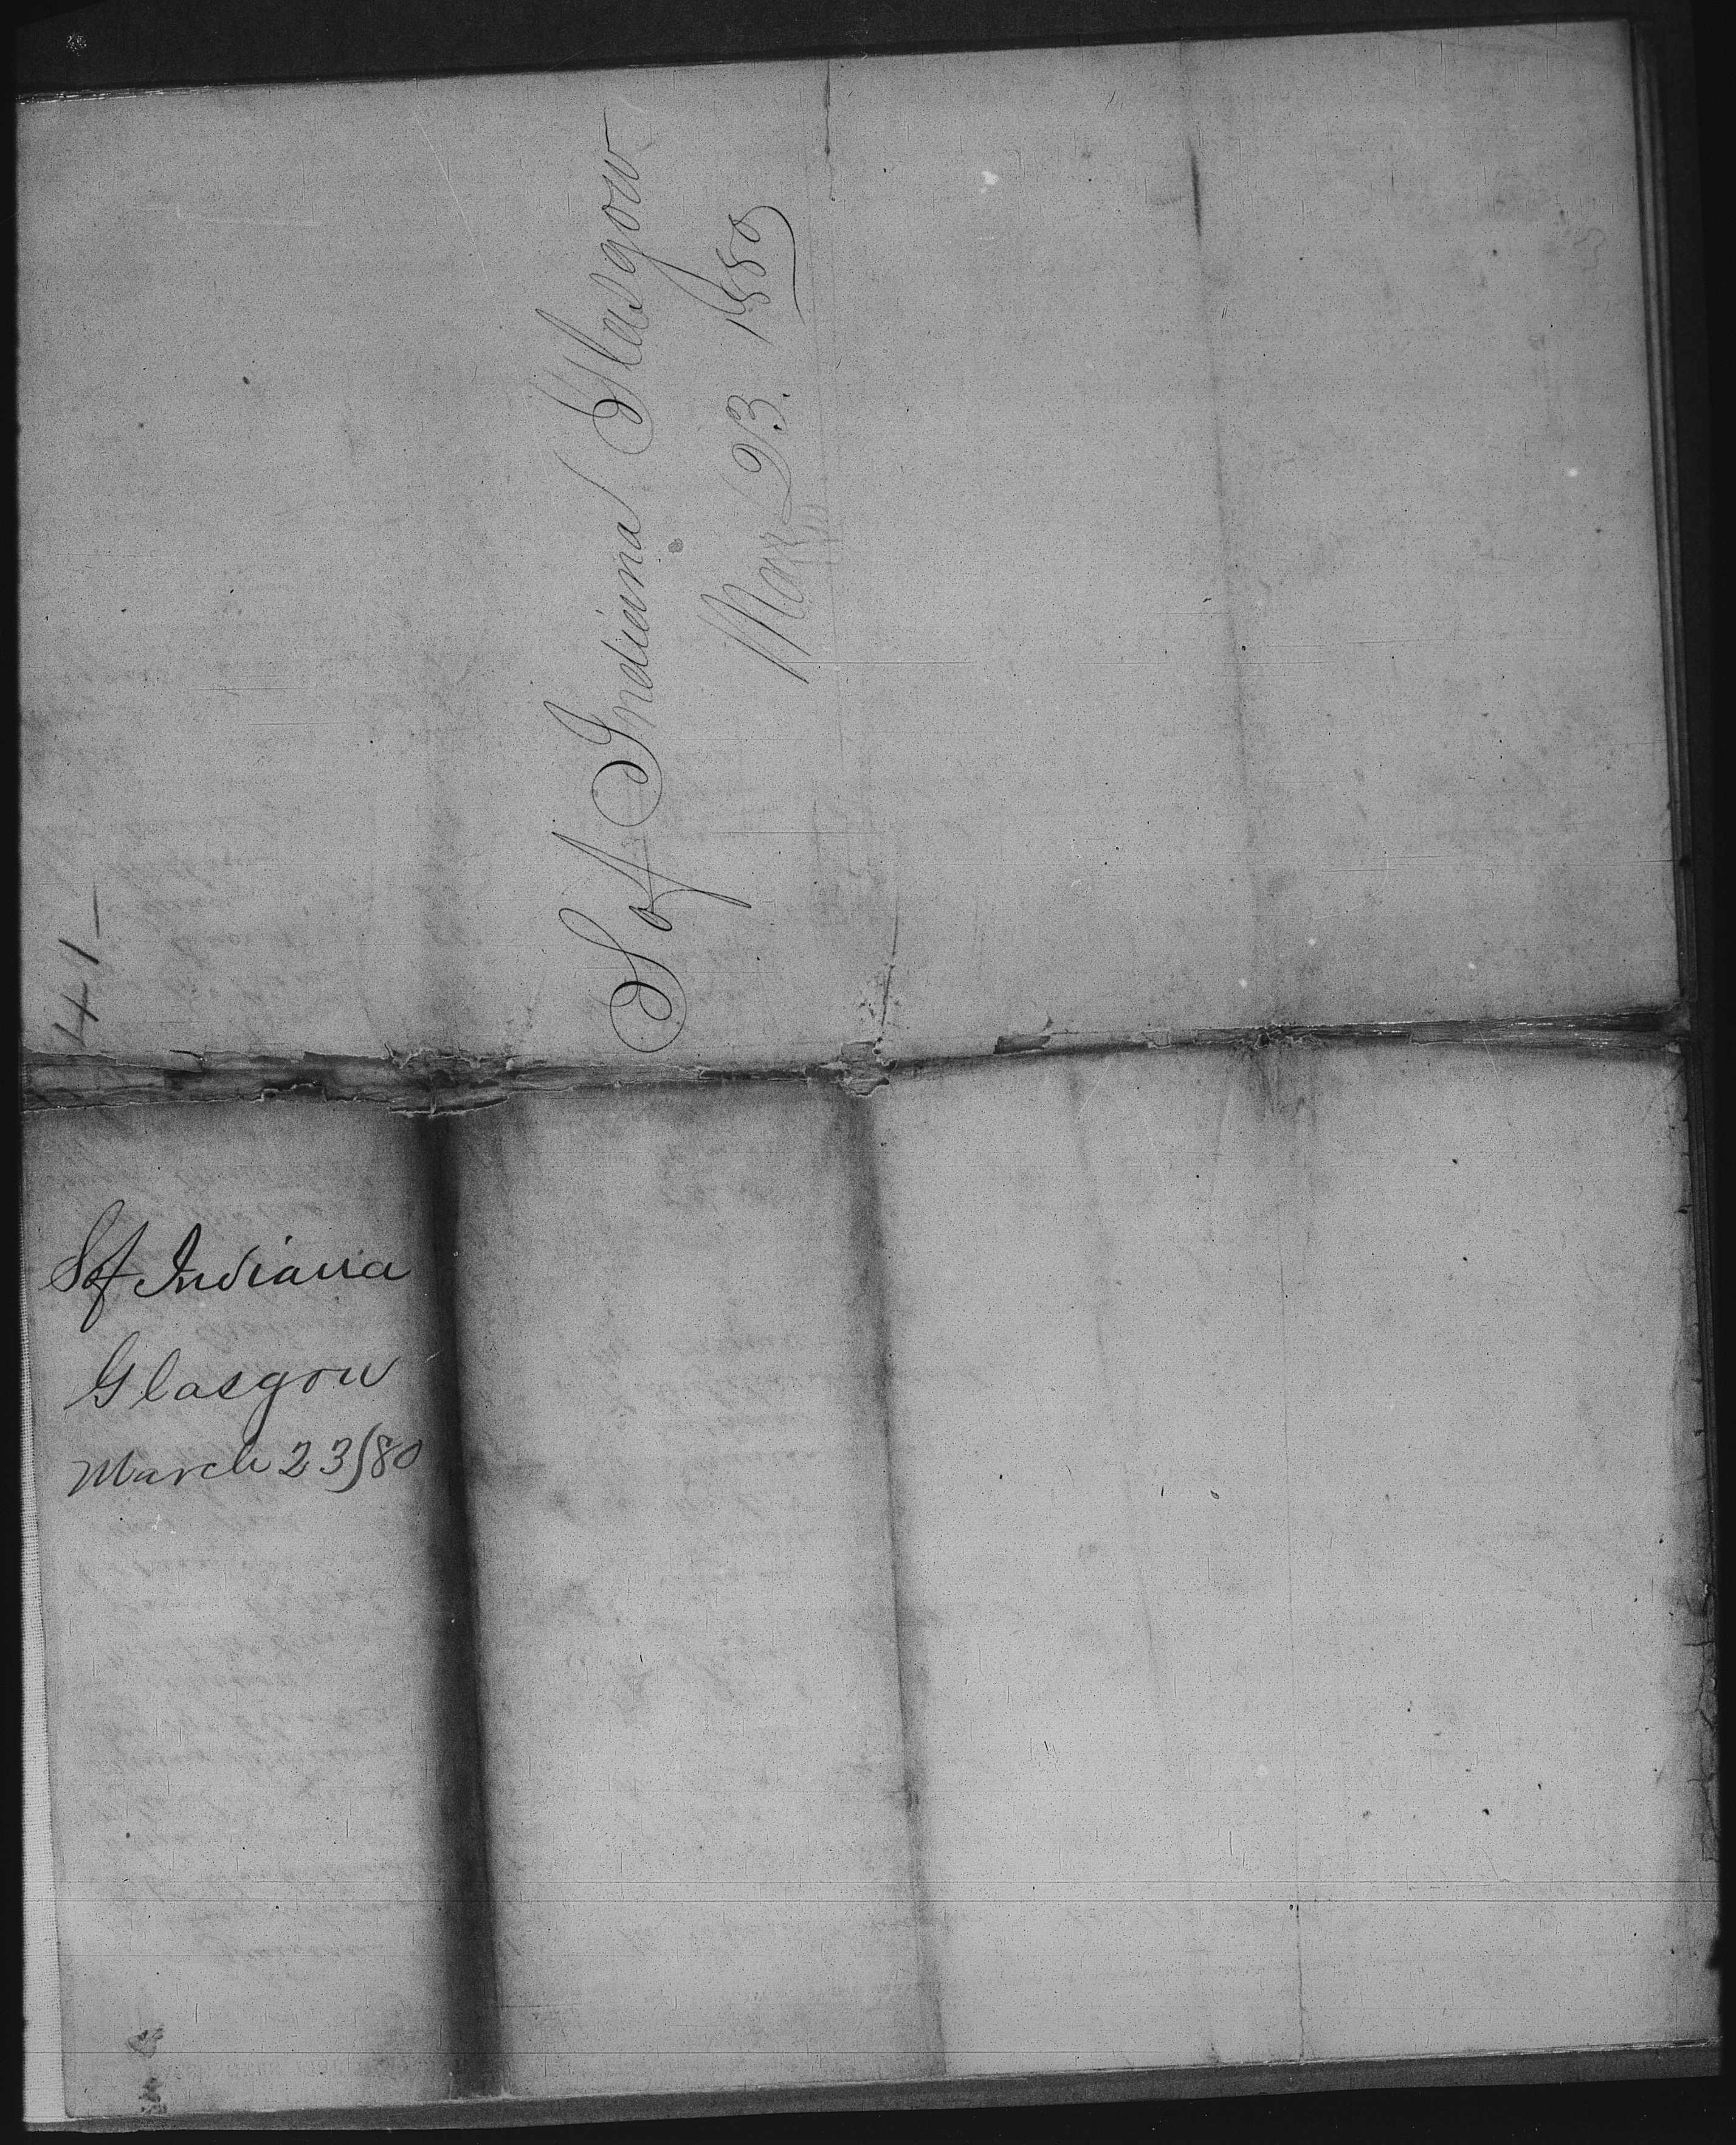 S of Indiana Glasgow
Mar 23. 1880
41
S of Indiana
Glasgow
March 23/80